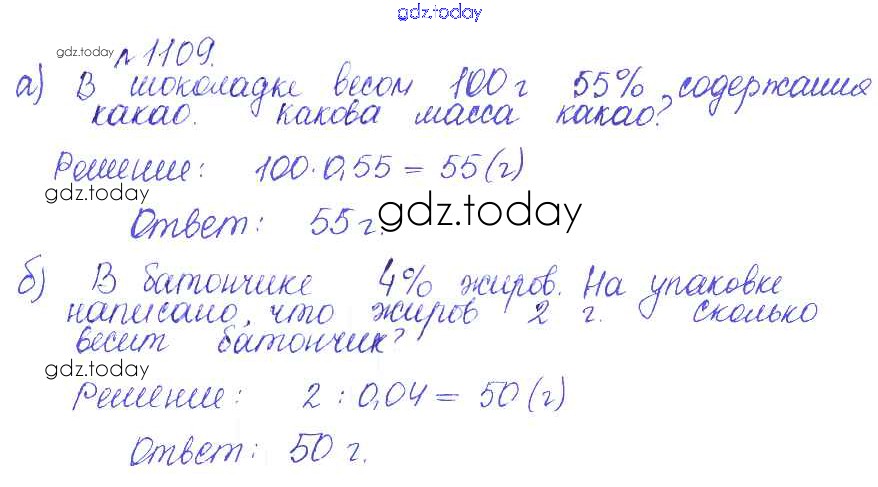 gdz.today
gdz.today № 1109.
а) В шоколадке весом 100 г 55% содержания
какао. какова масса какао?
Решение: 100·0,55 = 55 (г)
gdz.today
Ответ: 55 г. gdz.today
б) В батончике 4% жиров. На упаковке
написано, что жиров 2 г. сколько
весит батончик?
gdz.today
Решение: 2 : 0,04 = 50 (г)
Ответ: 50 г.